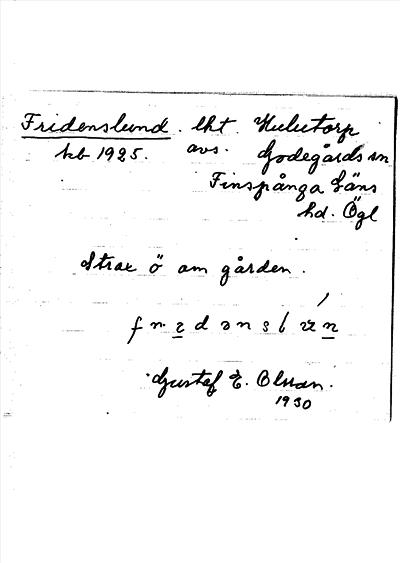 Fridenslund. lht Hulutorp
kb 1925. avs. Godegårds sn
Finspånga läns
hd. Ögl
Strax ö om gården.
Gustaf E. Olsson.
1930